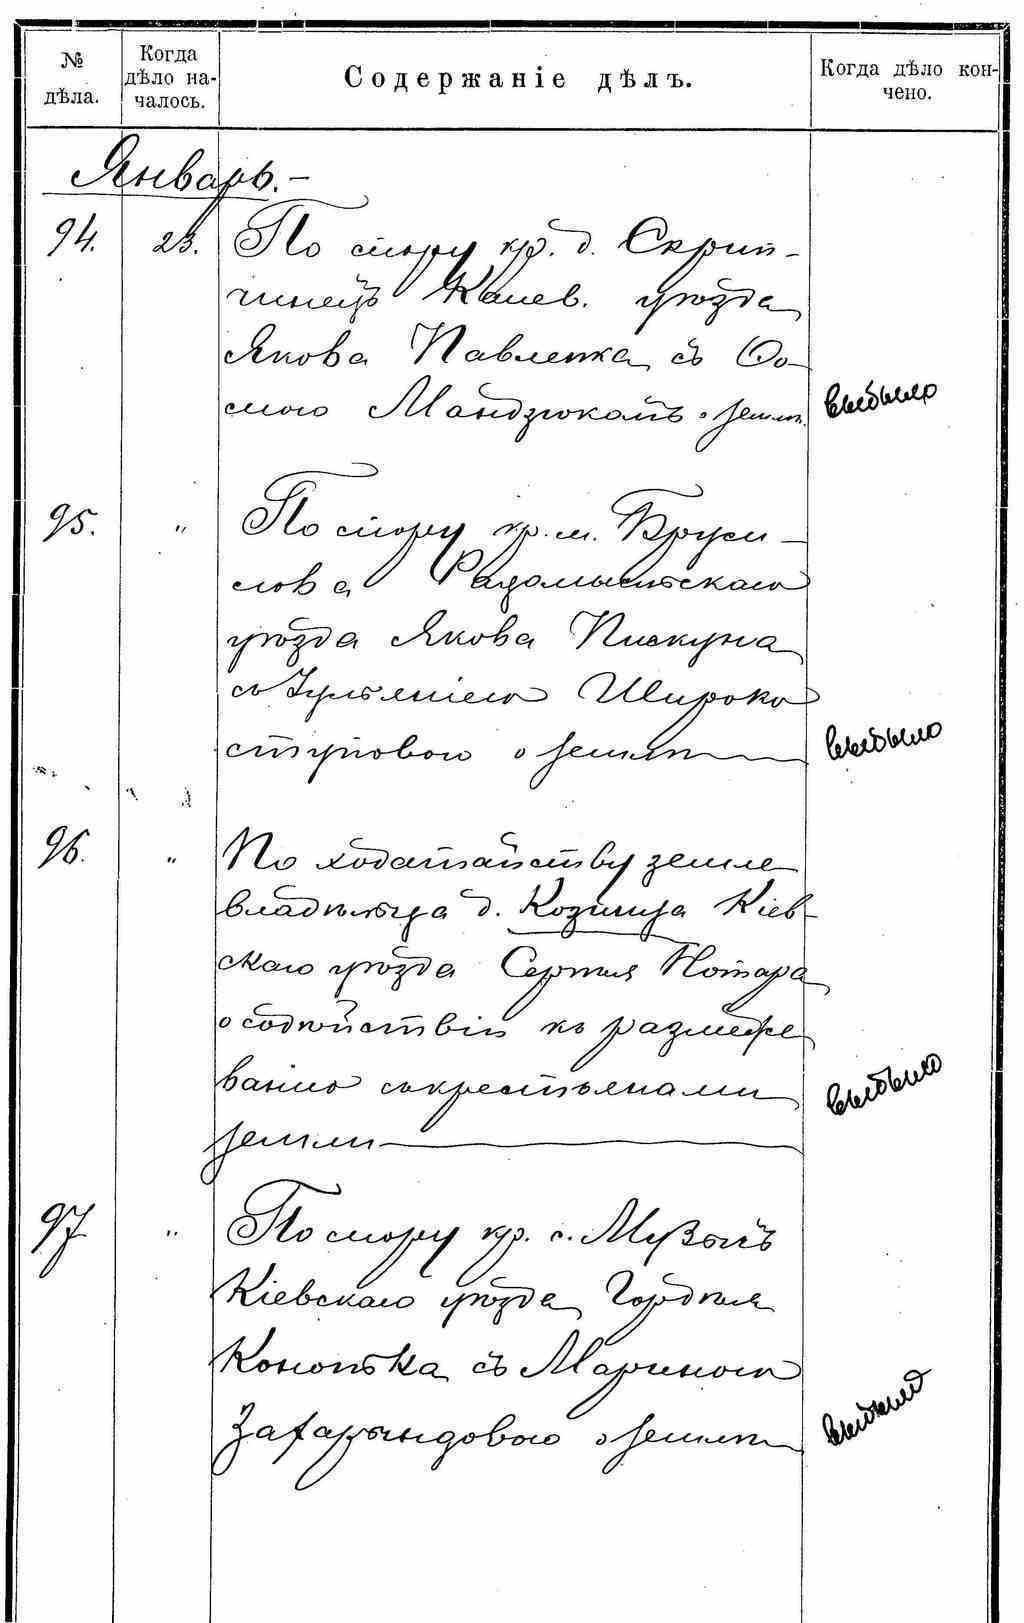 № дѣла.
Когда дѣло на-
чалось.
Содержаніе дѣлъ.
Когда дѣло кон-
чено.
Январь.-
94. 23. По спору кр. д. Скрип-
чинецъ Канев. уѣзда
Якова Павленка съ Ѳо-
мою Мандзюкомъ о землѣ. выбыло
95. " По спору кр. м. Бруси-
лова Радомысльскаго
уѣзда Якова Пискуна
съ Ульяніею Широко
ступовою о землѣ выбыло
96. " По ходатайству земле
владѣльца д. Козинца Кіев-
скаго уѣзда Сергѣя Потара
о содѣйствіи къ размеже
ванію съ крестьянами
земли выбыло
97 " По спору кр. с. Музычъ
Кіевскаго уѣзда Гордѣя
Конопѣка съ Мариною
о землѣ выбыло